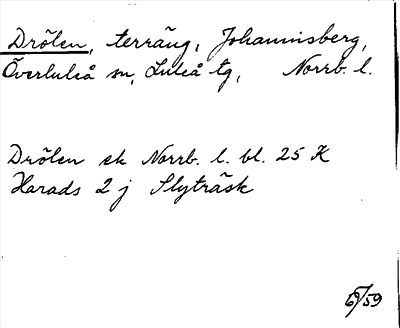 Drölen, terräng, Johannisberg,
Överluleå sn, Luleå tg, Norrb. l.
Drölen ek Norrb. l. bl. 25 K
Harads 2 j Slyträsk
6/59